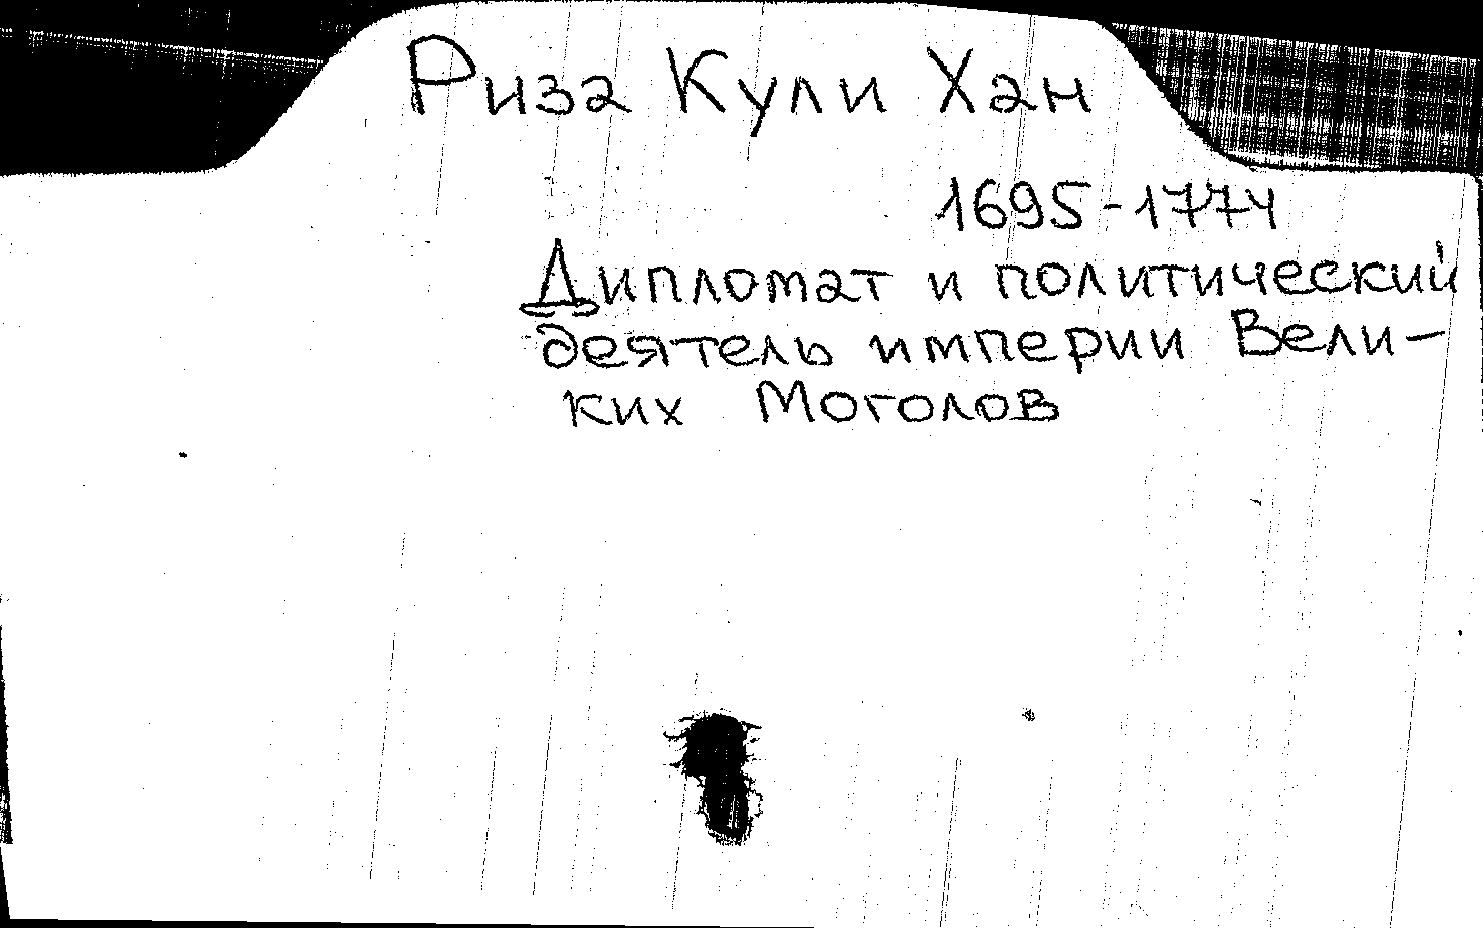 Риза Кули Хан
1695-1774
Дипломат и политический
деятель империи Вели-
ких Моголов